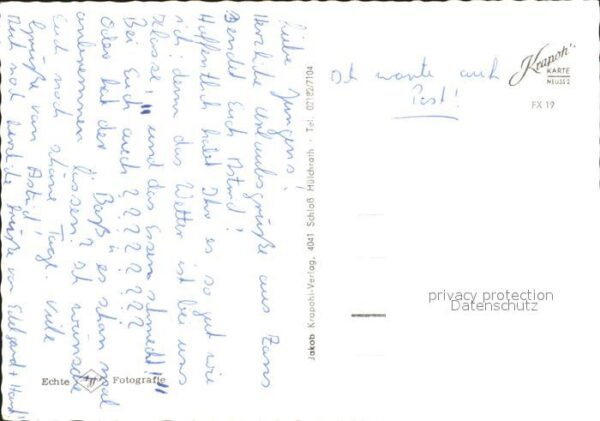 Liebe Jungens!
Herzliche Urlaubsgrüße aus Zons
sendet Euch Astrid!
Hoffentlich habt Ihr es so gut wie
ich! denn das Wetter ist bei uns
"Klasse!" und das Essen schmeckt!"
Bei Euch auch???????
Oder hat der Baß es schon mal
anbrennen lassen? Ich wünsche
Euch noch schöne Tage. Viele
Grüße von Astrid!
Auch noch Grüße von + Hans
Ich warte auf
Post!
Krapohl
KARTE
NEUSS 2
FX 19
Jakob Krapohl-Verlag, 4041 Schloß Hülchrath · Tel. 02182/7104
privacy protection
Datenschutz
Echte Fotografie